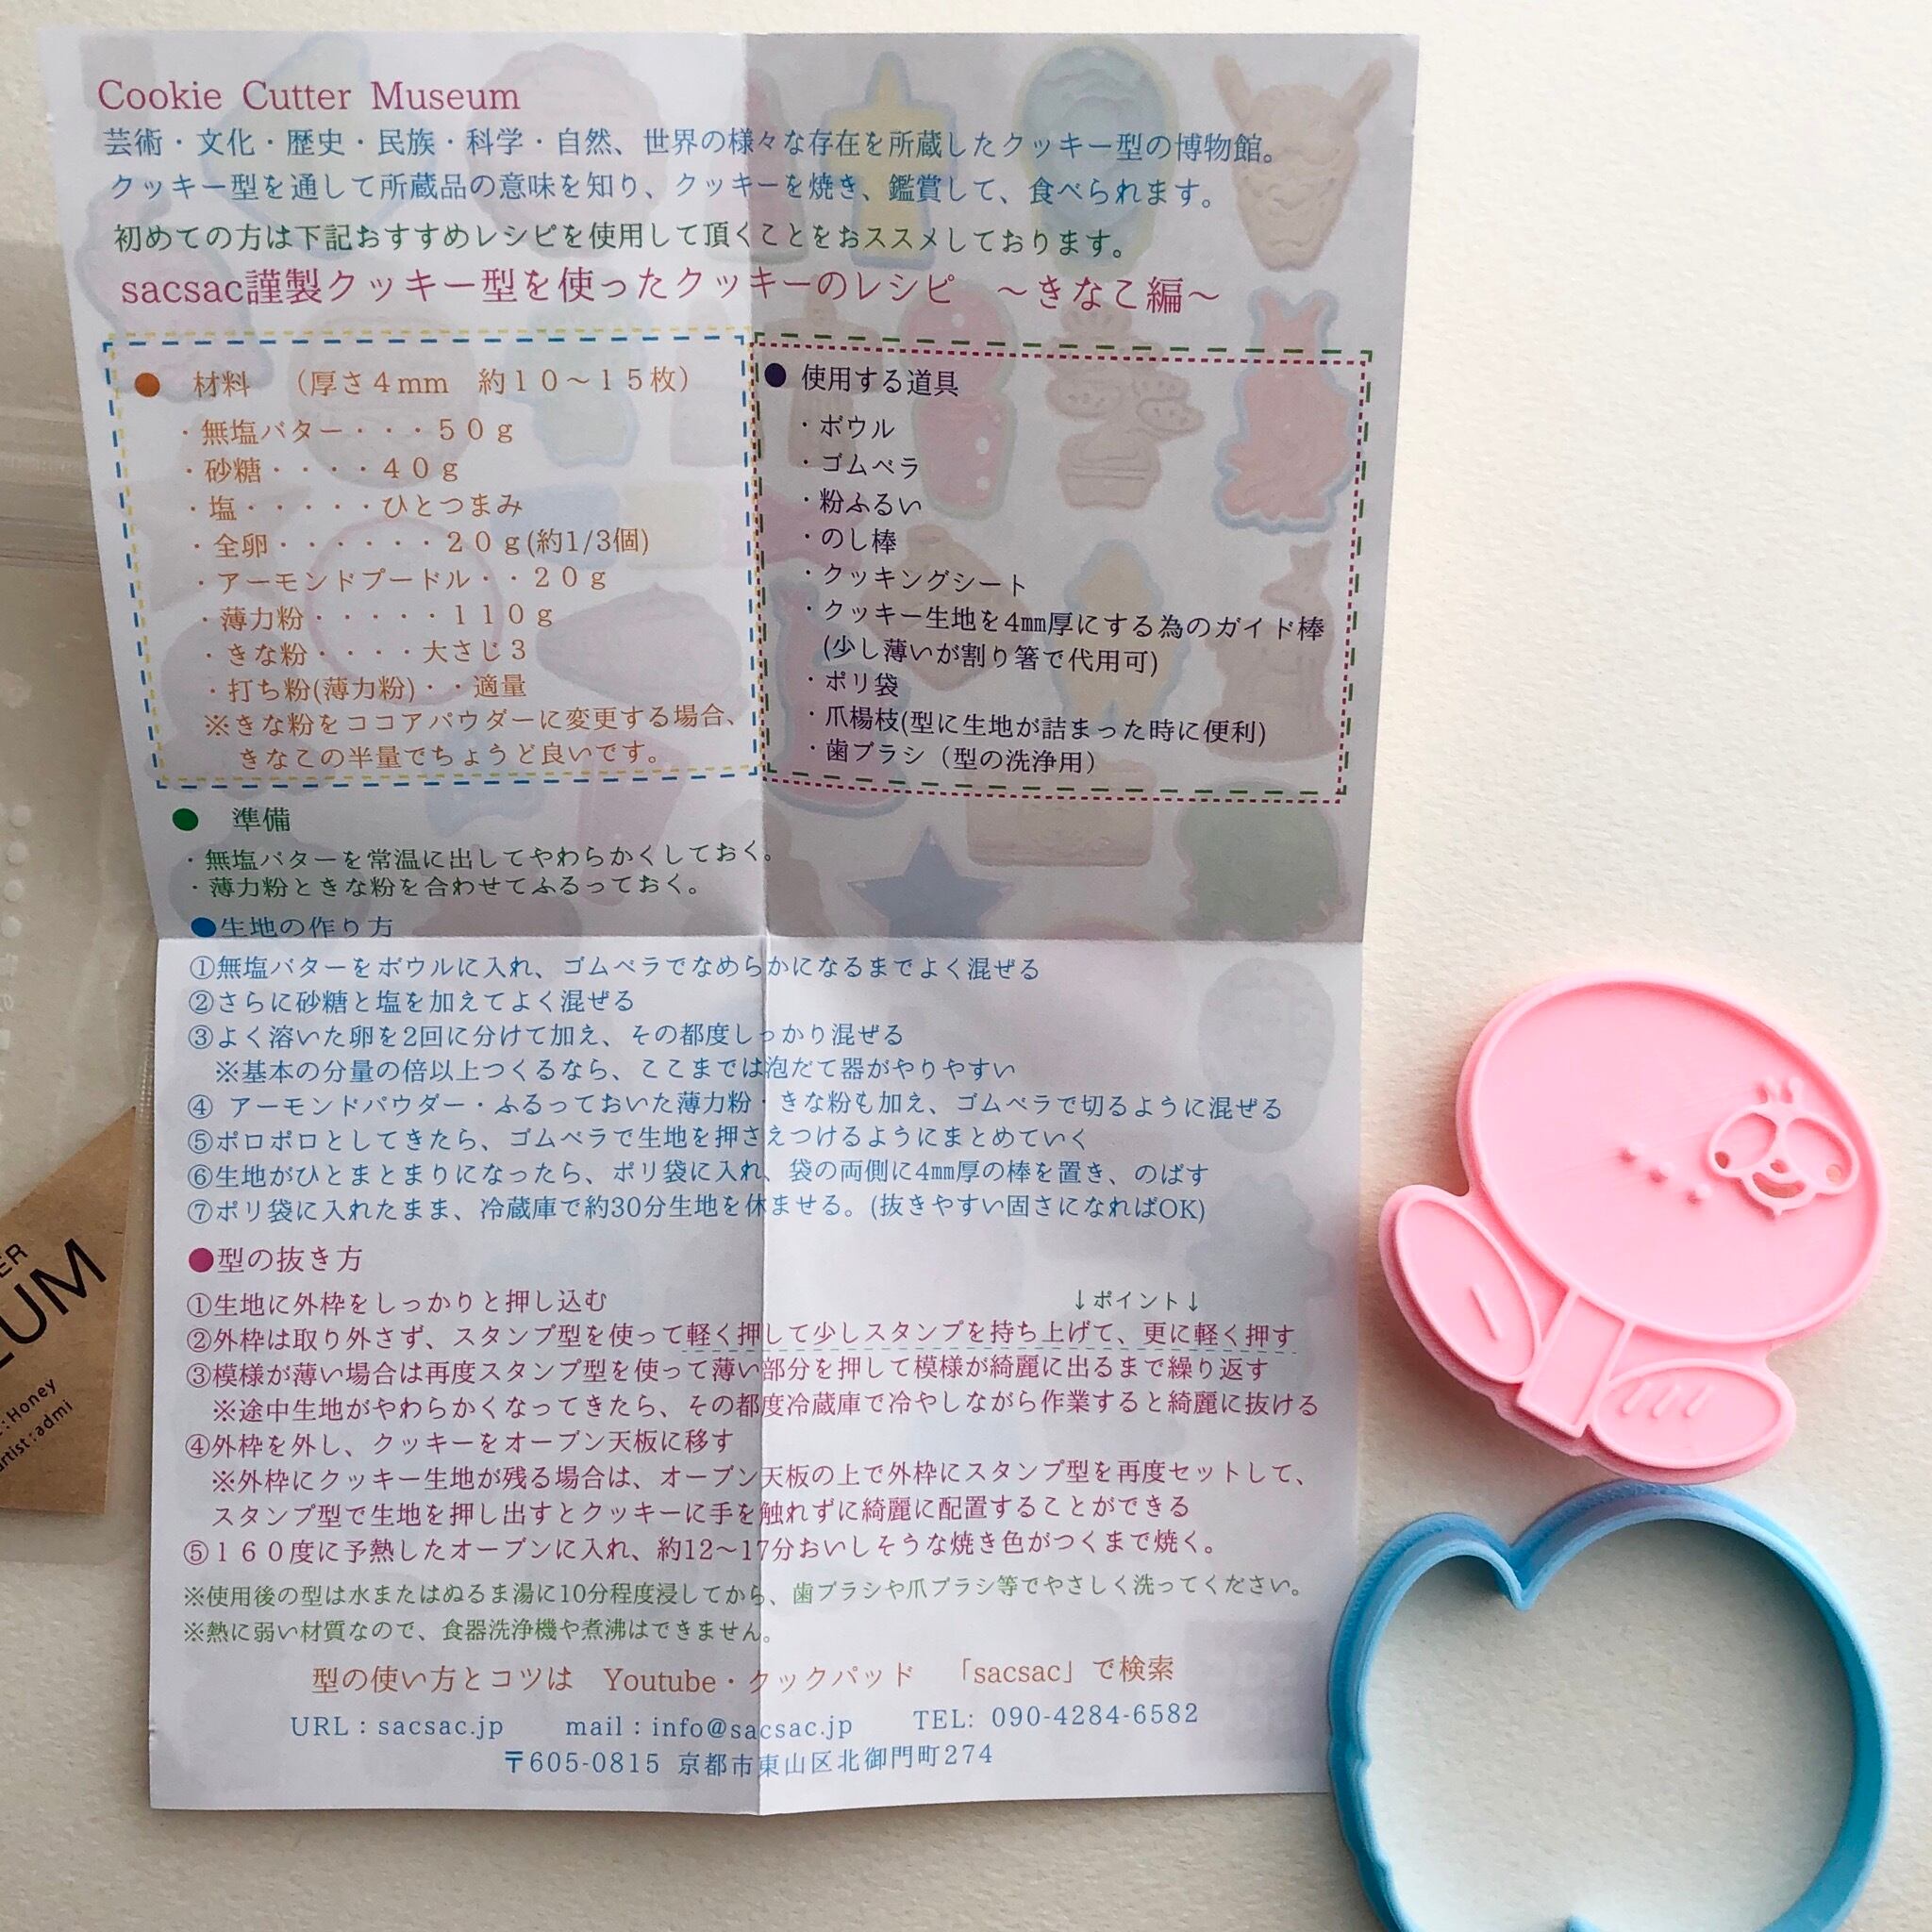 Cookie Cutter Museum
芸術・文化・歴史・民族・科学・自然、世界の様々な存在を所蔵したクッキー型の博物館。
クッキー型を通して所蔵品の意味を知り、クッキーを焼き、鑑賞して、食べられます。
初めての方は下記おすすめレシピを使用して頂くことをおススメしております。
sacsac謹製クッキー型を使ったクッキーのレシピ　～きなこ編～
● 材料　（厚さ４mm　約１０～１５枚）
・無塩バター・・・５０ｇ
・砂糖・・・・４０ｇ
・塩・・・・・ひとつまみ
・全卵・・・・・・２０ｇ(約1/3個)
・アーモンドプードル・・２０ｇ
・薄力粉・・・・・１１０ｇ
・きな粉・・・・大さじ３
・打ち粉(薄力粉)・・適量
※きな粉をココアパウダーに変更する場合、
きなこの半量でちょうど良いです。
● 使用する道具
・ボウル
・ゴムベラ
・粉ふるい
・のし棒
・クッキングシート
・クッキー生地を4㎜厚にする為のガイド棒
(少し薄いが割り箸で代用可)
・ポリ袋
・爪楊枝(型に生地が詰まった時に便利)
・歯ブラシ（型の洗浄用）
● 準備
・無塩バターを常温に出してやわらかくしておく。
・薄力粉ときな粉を合わせてふるっておく。
●生地の作り方
①無塩バターをボウルに入れ、ゴムベラでなめらかになるまでよく混ぜる
②さらに砂糖と塩を加えてよく混ぜる
③よく溶いた卵を2回に分けて加え、その都度しっかり混ぜる
※基本の分量の倍以上つくるなら、ここまでは泡だて器がやりやすい
④ アーモンドパウダー・ふるっておいた薄力粉・きな粉も加え、ゴムベラで切るように混ぜる
⑤ポロポロとしてきたら、ゴムベラで生地を押さえつけるようにまとめていく
⑥生地がひとまとまりになったら、ポリ袋に入れ、袋の両側に4㎜厚の棒を置き、のばす
⑦ポリ袋に入れたまま、冷蔵庫で約30分生地を休ませる。(抜きやすい固さになればOK)
●型の抜き方
①生地に外枠をしっかりと押し込む
↓ポイント↓
②外枠は取り外さず、スタンプ型を使って軽く押して少しスタンプを持ち上げて、更に軽く押す
③模様が薄い場合は再度スタンプ型を使って薄い部分を押して模様が綺麗に出るまで繰り返す
※途中生地がやわらかくなってきたら、その都度冷蔵庫で冷やしながら作業すると綺麗に抜ける
④外枠を外し、クッキーをオーブン天板に移す
※外枠にクッキー生地が残る場合は、オーブン天板の上で外枠にスタンプ型を再度セットして、
スタンプ型で生地を押し出すとクッキーに手を触れずに綺麗に配置することができる
⑤１６０度に予熱したオーブンに入れ、約12～17分おいしそうな焼き色がつくまで焼く。
※使用後の型は水またはぬるま湯に10分程度浸してから、歯ブラシや爪ブラシ等でやさしく洗ってください。
※熱に弱い材質なので、食器洗浄機や煮沸はできません。
型の使い方とコツは　Youtube・クックパッド　「sacsac」で検索
URL：sacsac.jp　mail：info@sacsac.jp　TEL: 090-4284-6582
〒605-0815 京都市東山区北御門町274
:Honey
artist:admi